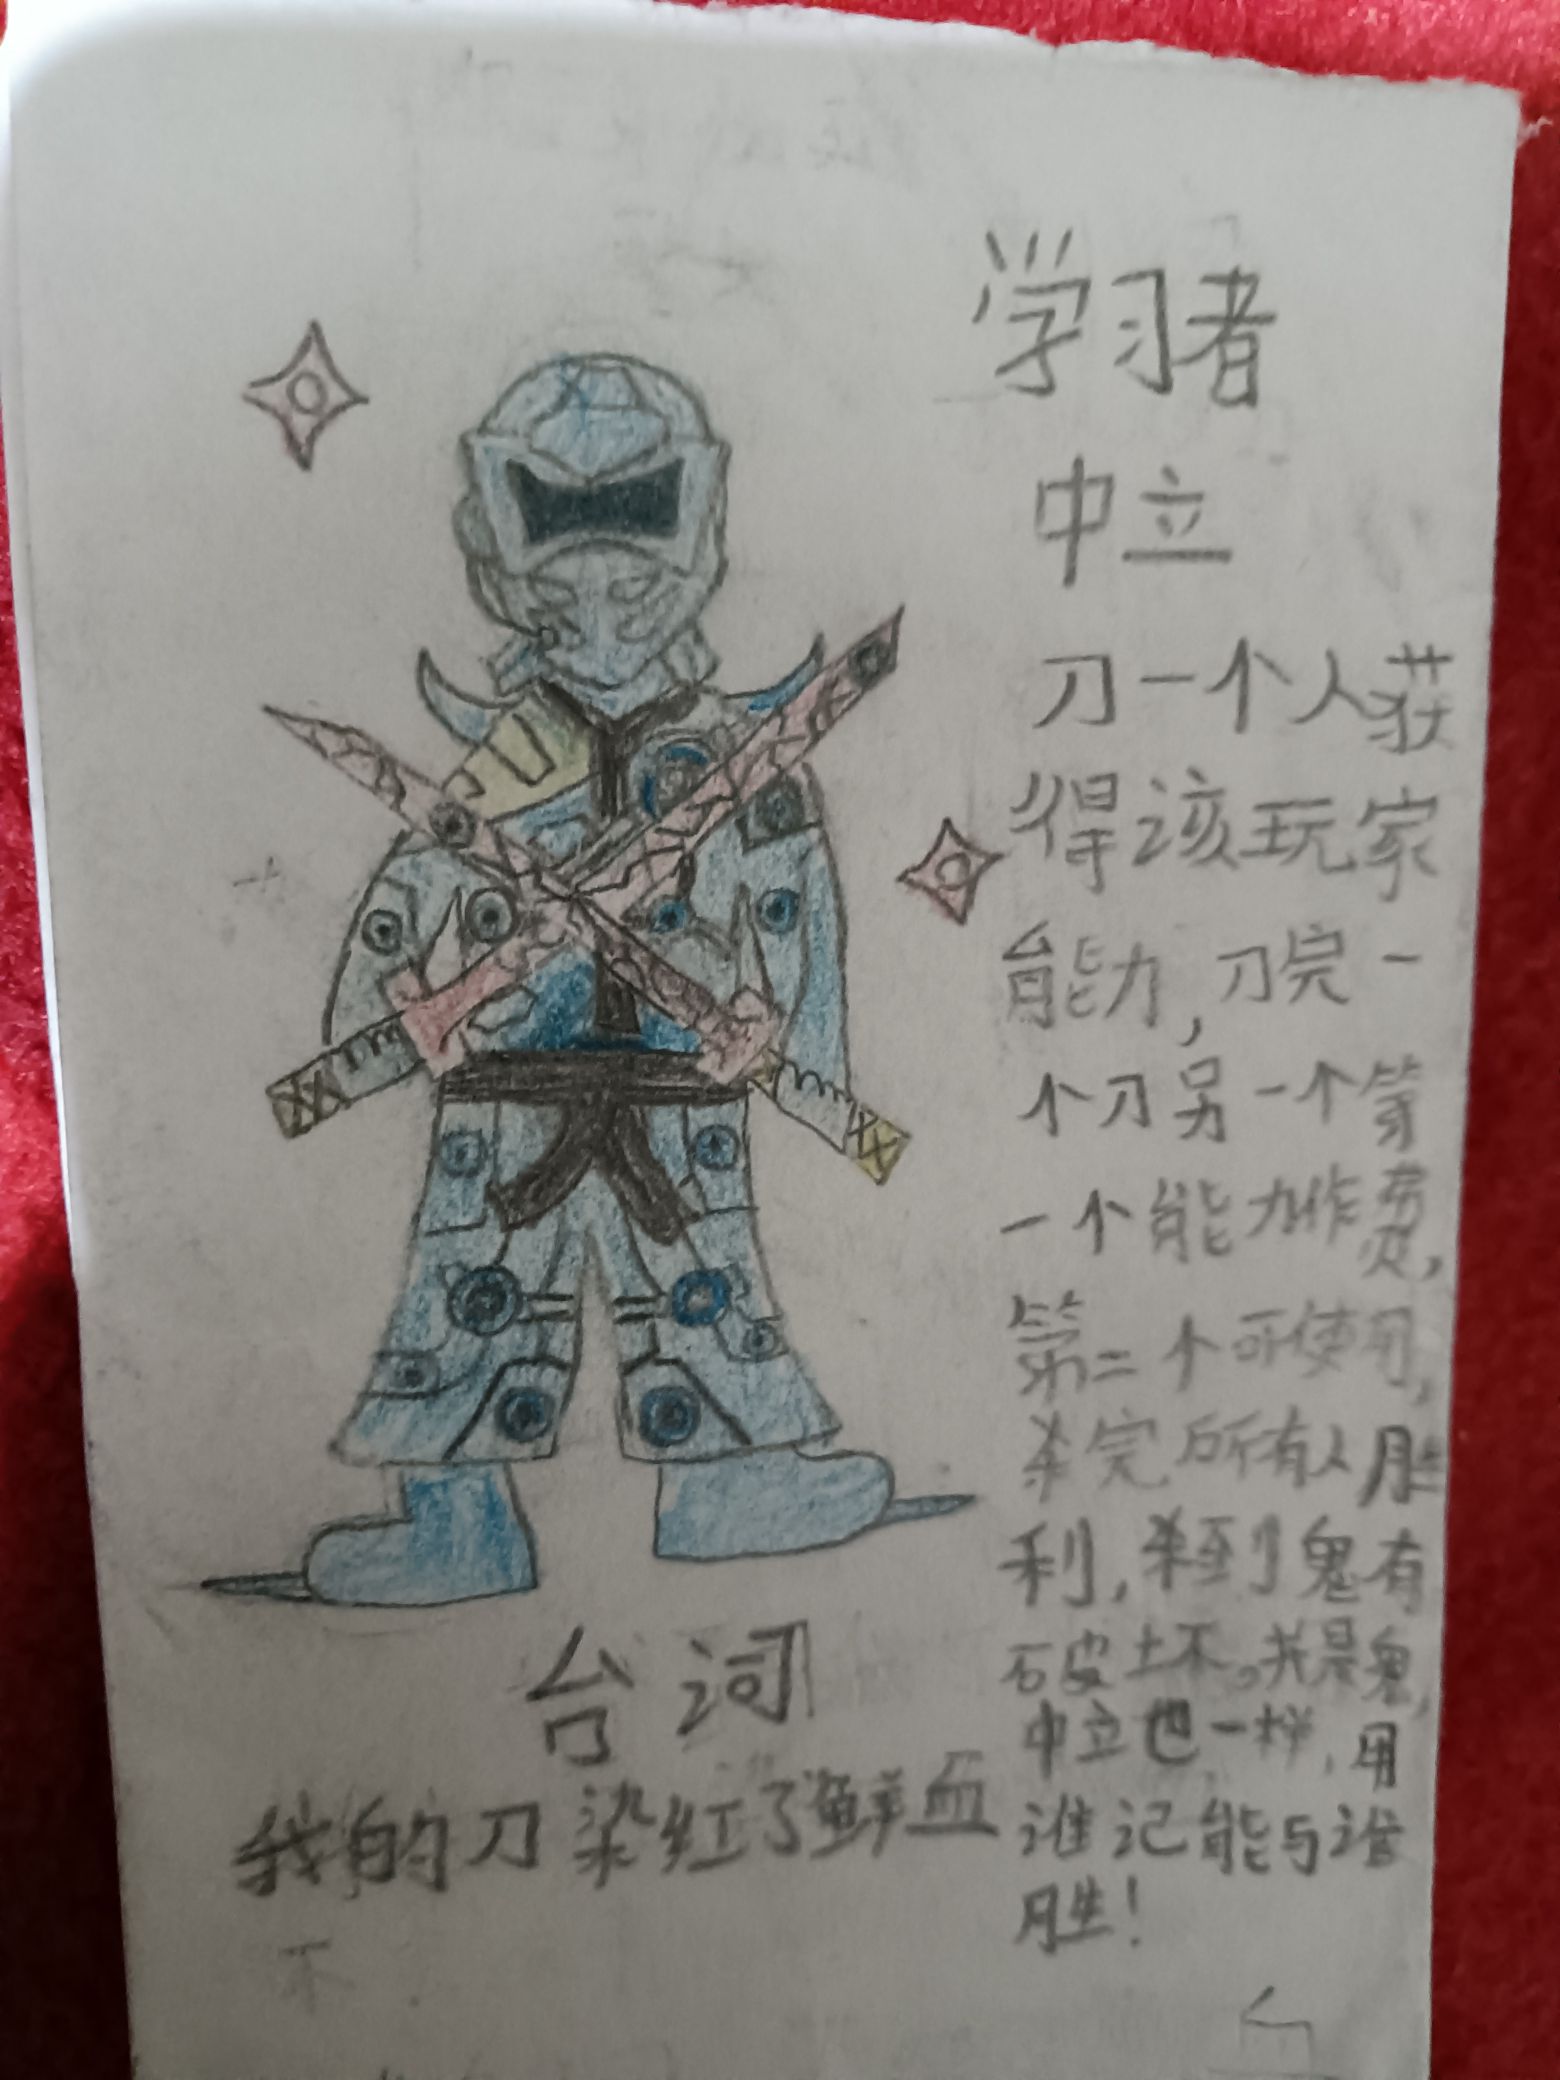 学习者
中立
刀一个人获
得该玩家
能力,刀完一
个刀另一个第
一个能力作费,
第二个可使用,
杀完所有人胜
利,杀到鬼有
破坏。并是鬼,
中立也一样,用
谁记能与谁
胜!
台词
我的刀染红了鲜血
不